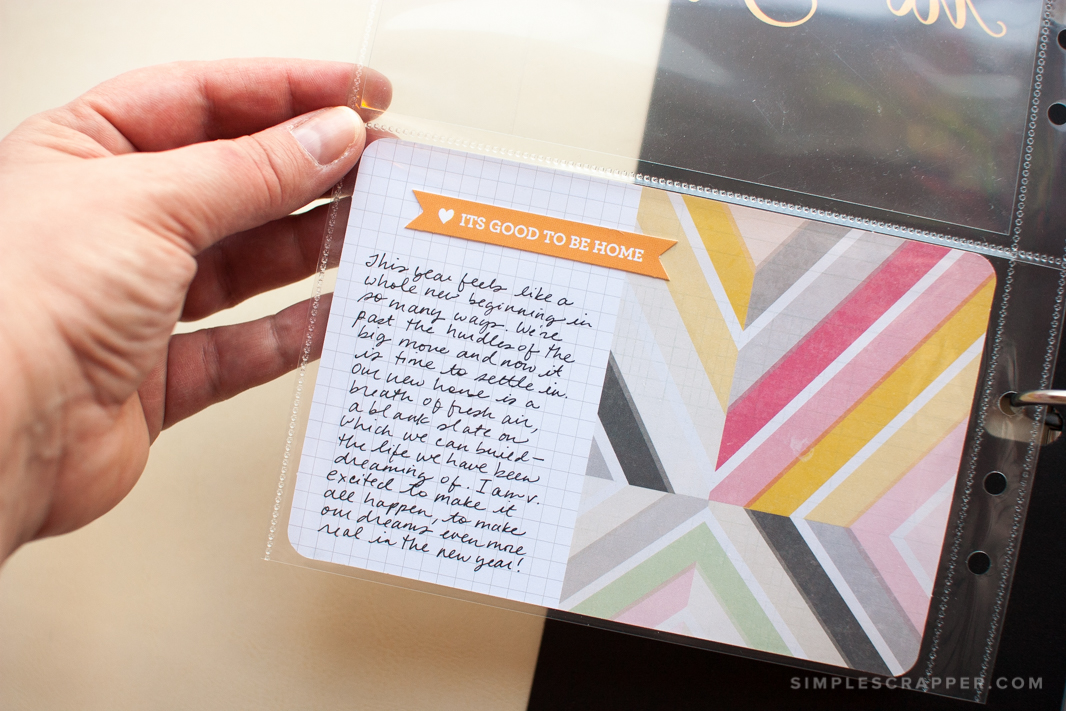 ITS GOOD TO BE HOME
This year feels like a
whole new beginning in
so many ways. We're
past the hurdles of the
big move and now it
is time to settle in.
Our new house is a
breath of fresh air,
a blank slate on
which we can build—
the life we have been
dreaming of. I am v.
excited to make it
all happen, to make
our dreams even more
real in the new year!
SIMPLESCRAPPER.COM